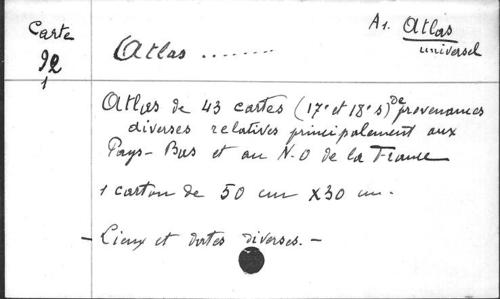 Carte
92
1
A1. Atlas
universel
Atlas .......
Atlas de 43 cartes (17e et 18e s) De provenances
diverses relatives principalement aux
Pays-Bas et au N.O de la France
1 carton de 50 cm x 30 cm.
- Lieux et dates diverses. -